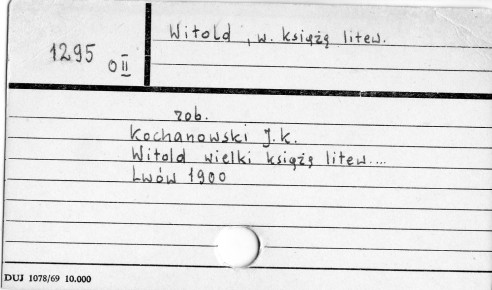 Witold, w. książę litew.
1295 O II
zob.
Kochanowski J.K.
Witold wielki książę litew....
Lwów 1900
DUJ 1078/69 10.000